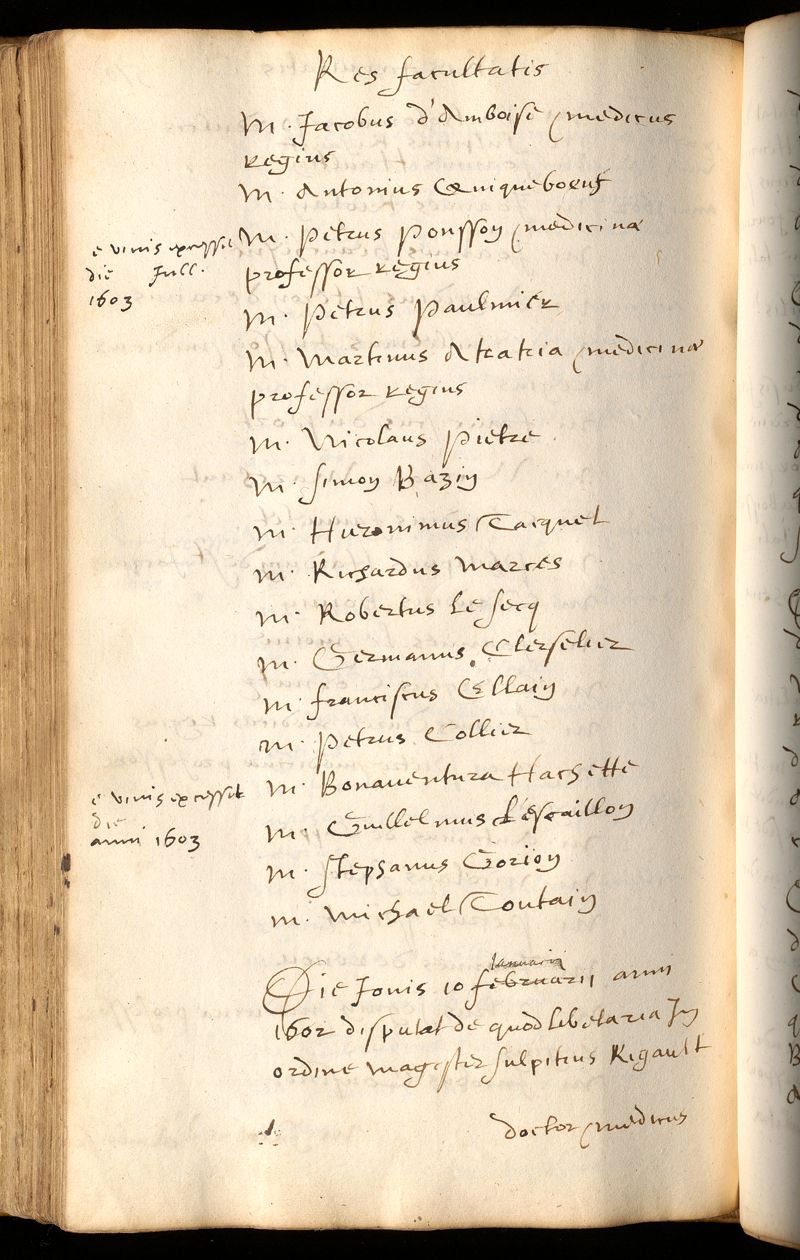 Res facultatis
M. Jacobus d'Amboise medicus
regius
M. Antonius Quiqueboeuf
e vivis excessit
die Jull.
1603
M. Petrus Ponsson medicinæ
professor regius
M. Petrus Paulmier
M. Martinus Akakia medicinæ
professor regius
M. Nicolaus Pietre
M. Simon Bazin
M. Hieronimus Tacquet
M. Richardus Marces
M. Robertus Le Secq
M. Germanus Clerselier
M. franciscus Ellain
M. Petrus Collier
M. Bonaventura Hachette
e vivis excessit
die
anni 1603
M. Guillelmus L'escaillon
M. Stephanus Gorion
M. Michael Toutain
Januarii
Die Jovis 10 februarii anni
1602 disputat de quodlibetaria In
ordine magister Sulpitius Rigault
doctor medicus